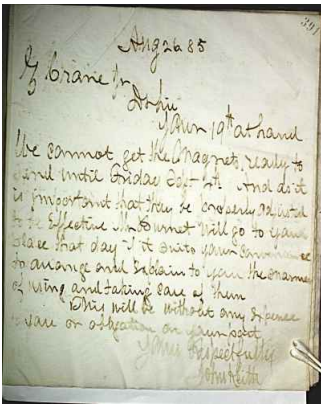 391
Aug 26 85
Z Crane Jr
D Sir
Your 19th at hand
We cannot get the Magnets ready to
send until Friday Sept 4th And as it
is important that they be properly adjusted
to be Effective Mr Burnet will go to your
place that day if it suits your convenience
to arrange and Explain to you the manner
of using and taking care of them
This will be without any Expense
care or obligation on your part
Yours Respectfully
John Keith